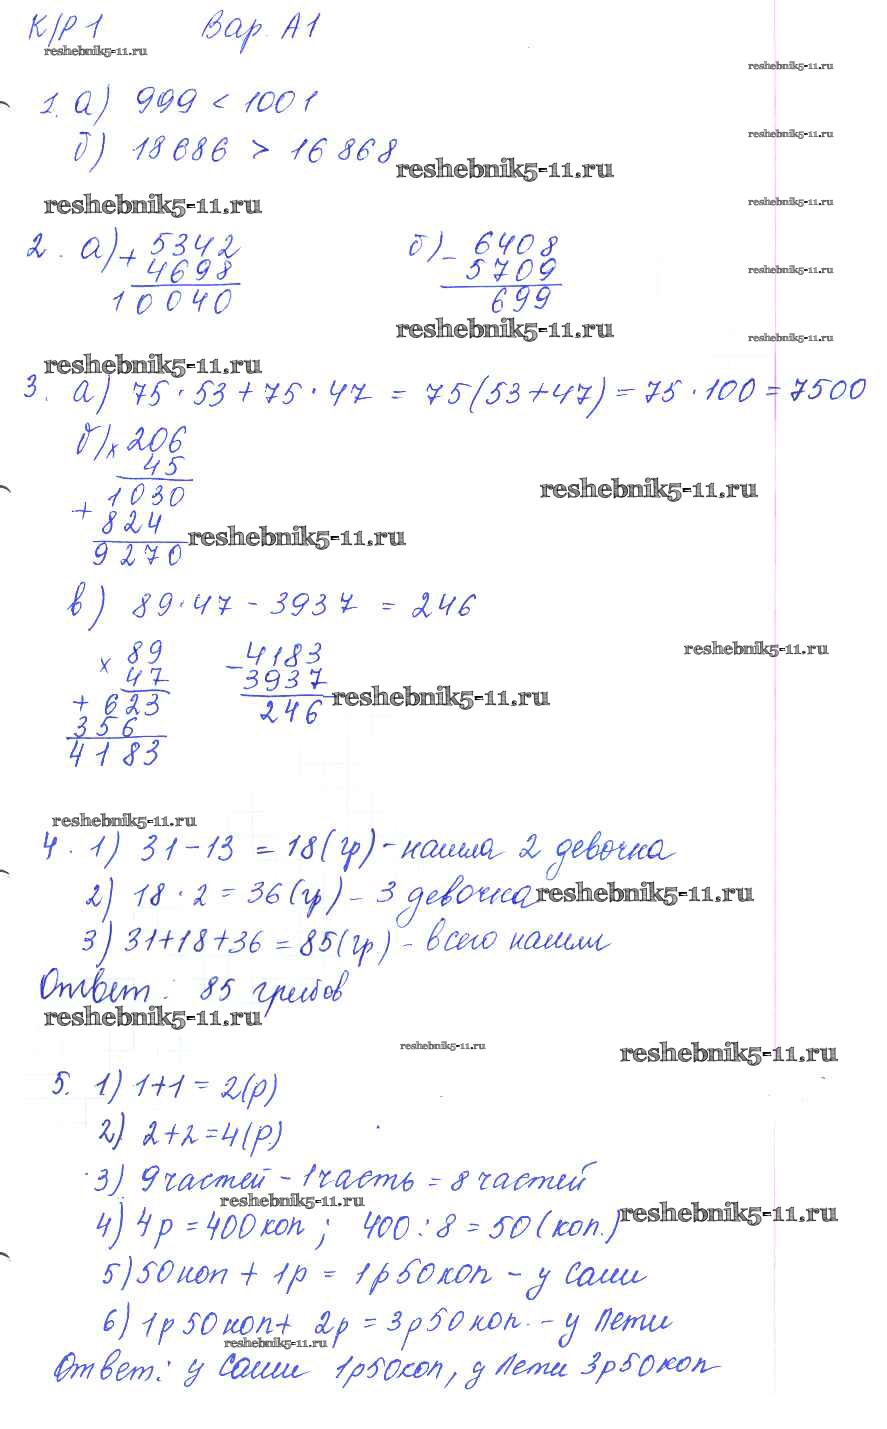 К/Р 1 Вар. А1
reshebnik5-11.ru
reshebnik5-11.ru
1. а) 999 < 1001
reshebnik5-11.ru
б) 18686 > 16868
reshebnik5-11.ru
reshebnik5-11.ru
reshebnik5-11.ru
2. а) + 5342 б) - 6408
4698 5709
reshebnik5-11.ru
10040 699
reshebnik5-11.ru
reshebnik5-11.ru
reshebnik5-11.ru
3. а) 75 · 53 + 75 · 47 = 75(53+47) = 75 · 100 = 7500
б) x 206
45
+ 1030
reshebnik5-11.ru
824
reshebnik5-11.ru
9270
в) 89 · 47 - 3937 = 246
reshebnik5-11.ru
x 89 - 4183
47 3937
reshebnik5-11.ru
+ 623 246
356
4183
reshebnik5-11.ru
4. 1) 31 - 13 = 18 (гр) - нашла 2 девочка
2) 18 · 2 = 36 (гр) - 3 девочка
reshebnik5-11.ru
3) 31+18+36 = 85 (гр) - всего нашли
Ответ: 85 грибов
reshebnik5-11.ru
reshebnik5-11.ru
reshebnik5-11.ru
5. 1) 1+1 = 2(р)
2) 2+2=4(р.)
3) 9 частей - 1 часть = 8 частей
reshebnik5-11.ru
4) 4р = 400 коп ; 400 : 8 = 50 (коп.)
reshebnik5-11.ru
5) 50 коп + 1р = 1р 50 коп - у Саши
6) 1р 50 коп + 2р = 3р 50 коп. - у Пети
reshebnik5-11.ru
Ответ: у Саши 1р50коп, у Пети 3р50коп